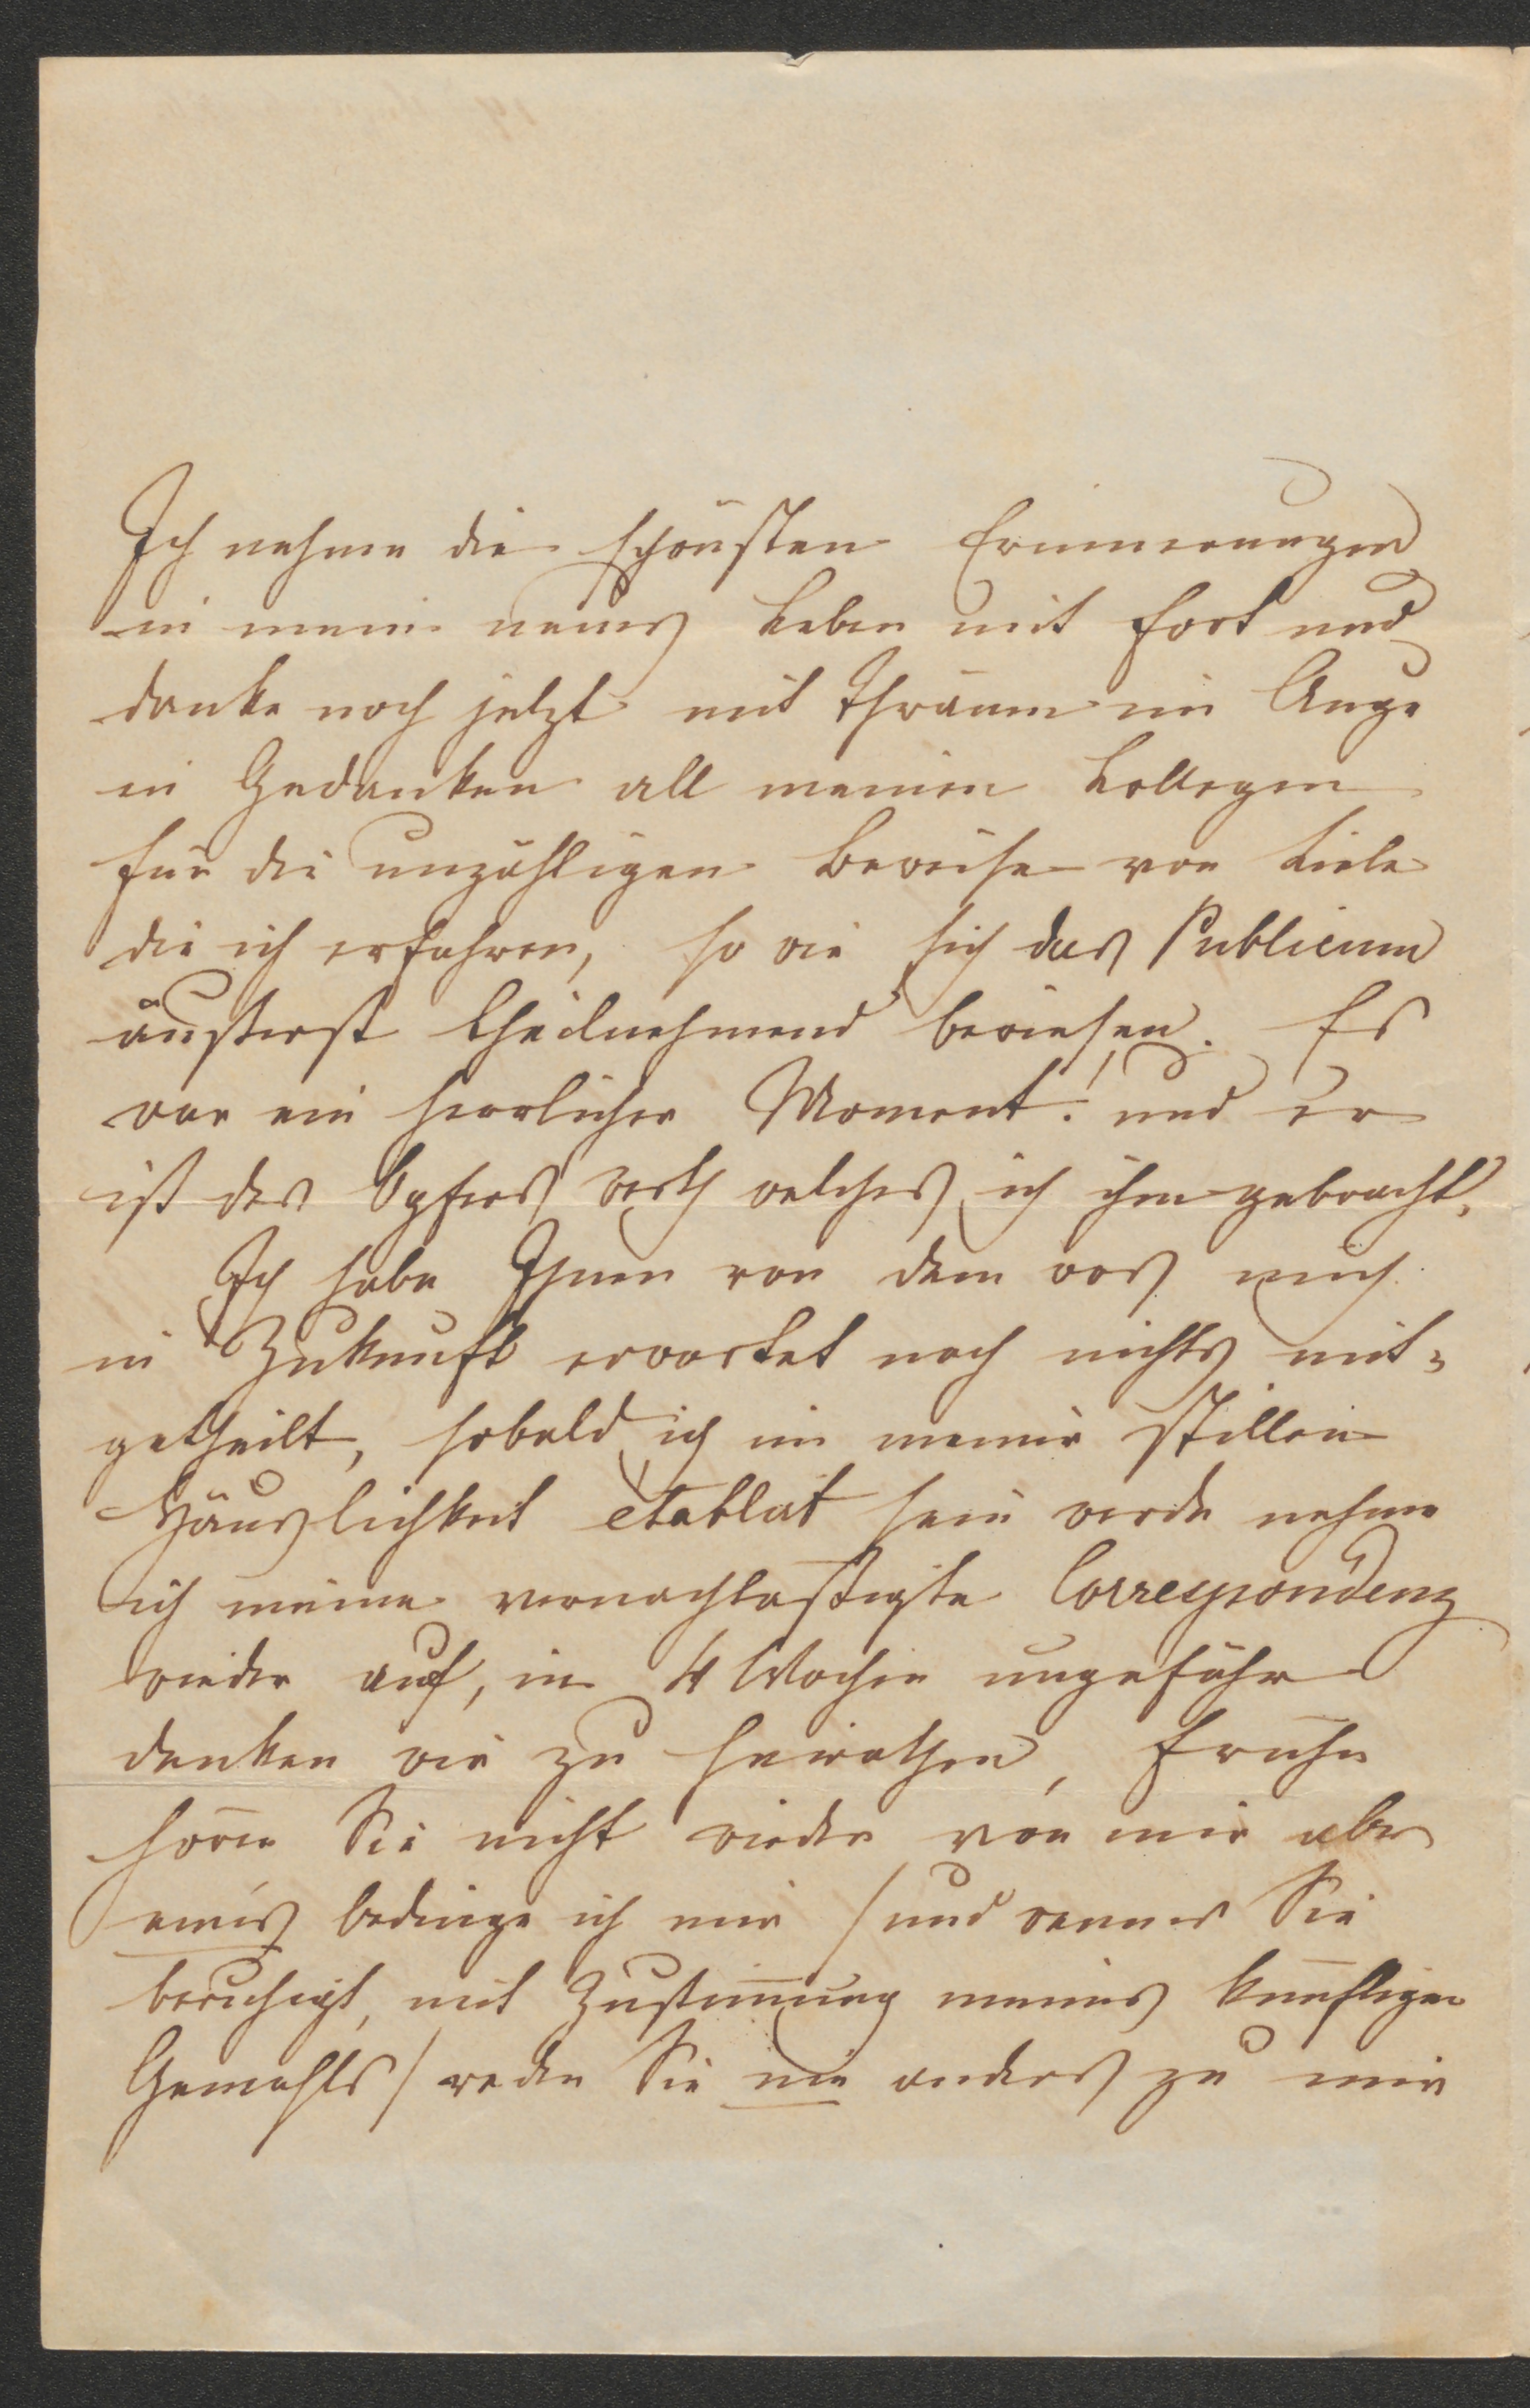 Ich nehme die schönsten Erinnerungen
in mein neues Leben mit fort und
danke noch jetzt mit Thränen im Auge
in Gedanken all meinen Kollegen
für die unzähligen Beweise von Liebe
die ich erfahren, so wie sich das Publicum
äusserst theilnehmend bewiesen. Es
war ein herrlicher Moment! und er
ist des Opfers werth welches ich ihm gebracht.
Ich habe Ihnen von dem was mich
in Zukunft erwartet noch nichts mit=
getheilt, sobald ich in meiner stillen
Häuslichkeit etablirt sein werde nehme
ich meine vernachlässigte Correspondenz
wieder auf, in 4 Wochen ungefähr
denken wir zu heirathen, früher
hören Sie nicht wieder von mir aber
eines bedinge ich mir / und seien Sie
beruhigt, mit Zustimmung meines künftigen
Gemahls / reden Sie nie anders zu mir